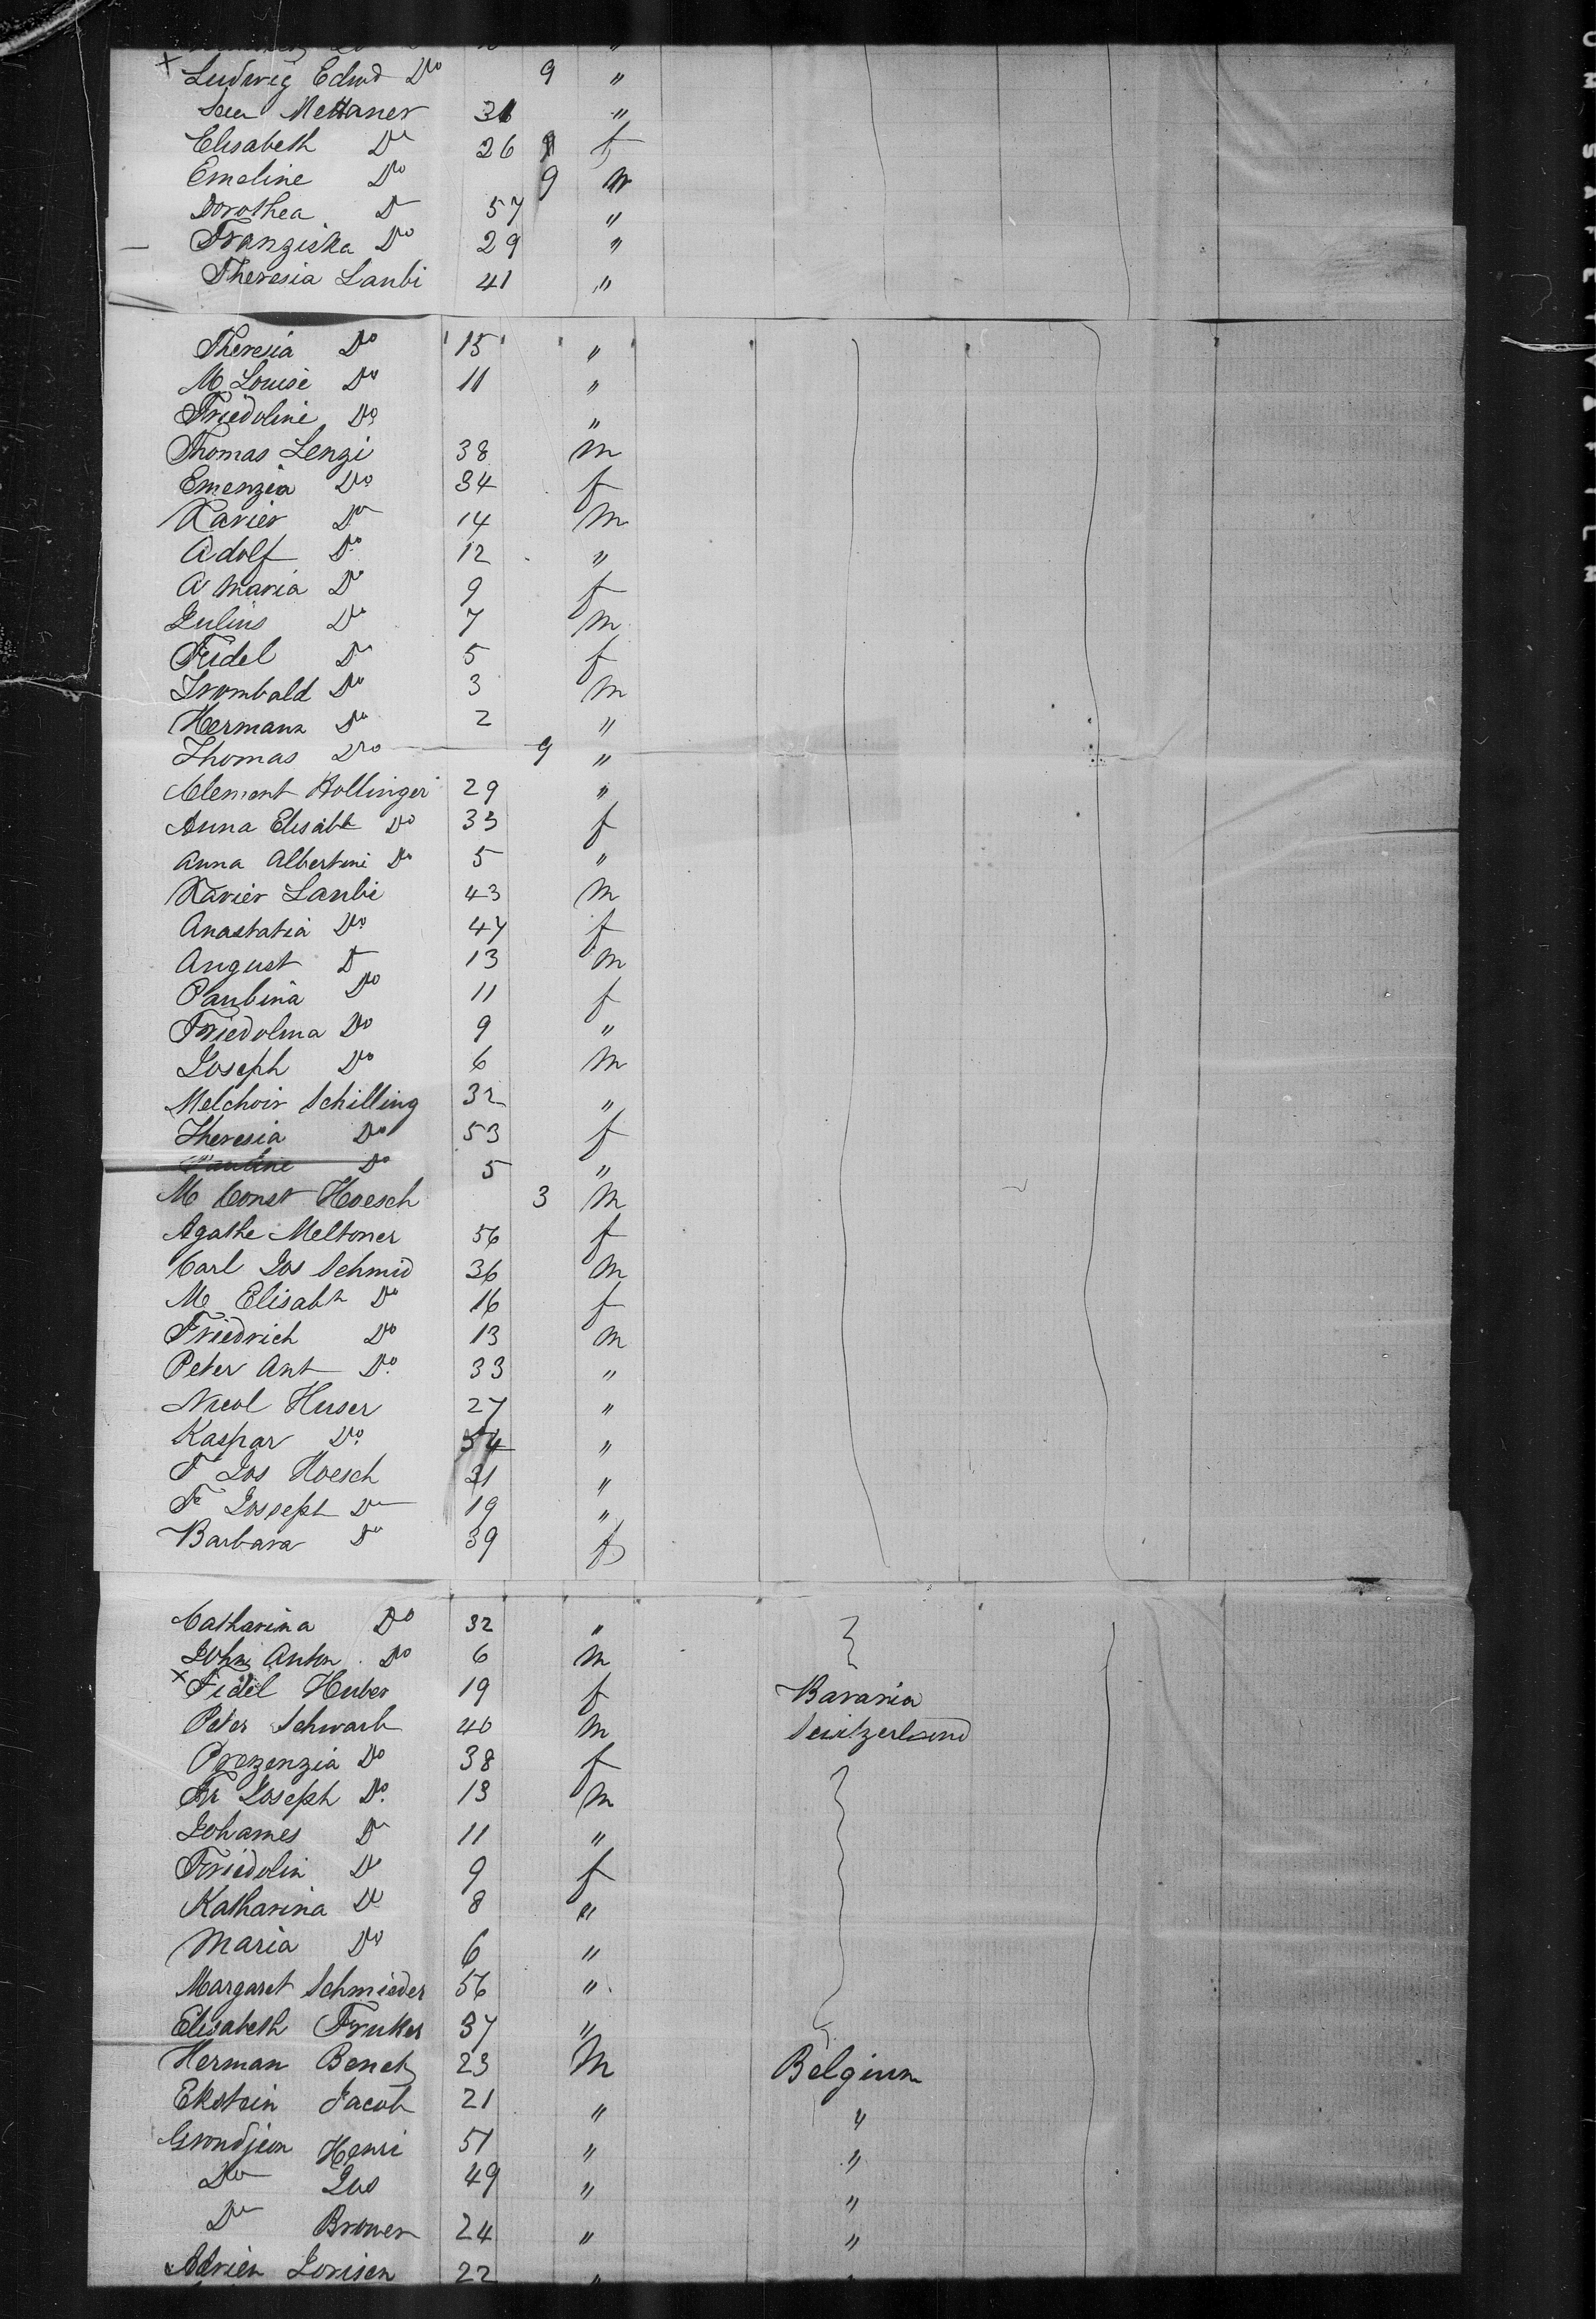 × Ludwig Edwd Do 9 "
Mettaner 31 "
Elisabeth Do 26 f
Emeline Do 9 m
Dorothea D 57 "
— Franziska Do 29 "
Theresia Laubi 41 "
Theresia Do 15 "
M Louise Do 11 "
Friedoline Do "
Thomas Lenzi 38 m
Emenzia Do 34 f
Xavier Do 14 m
Adolf Do 12 "
A Maria Do 9 f
Julius Do 7 m
Fidel Do 5 f
Trombald Do 3 m
Hermann Do 2 "
Thomas Do 9 "
Clement Hollinger 29 "
Anna Elisabh Do 33 f
Anna Albertini Do 5 "
Xavier Laubi 43 m
Anastatia Do 47 f
August D 13 m
Paulina Do 11 f
Friedolina Do 9 "
Joseph Do 6 m
Melchoir Schilling 32 "
Theresia Do 53 f
Pauline Do 5 "
M Const Hoesch 3 m
Agathe Meltoner 56 f
Carl Jos Schmid 36 m
M Elisabh Do 16 f
Friedrich Do 13 m
Peter Ant Do 33 "
Nicol Huser 27 "
Kaspar Do 54 "
F Jos Hoesch 21 "
Fr Josseph Do 19 "
Barbara Do 39 f
Catharina Do 32 "
John Anton Do 6 m
× Fidel Huber 19 f Bavaria
Peter Schwarb 40 m Switzerland
Prezenzia Do 38 f
Fr Joseph Do 13 m
Johames Do 11 "
Friedolin Do 9 f
Katharina Do 8 "
Maria Do 6 "
Margaret Schmieder 56 "
Elisabeth Fruker 37 "
Herman Benet 23 m Belgium
Ekstein Jacob 21 " "
Grondjean Henri 51 " "
Do Jus 49 " "
Do Brower 24 " "
Adrien Jorisen 22 "